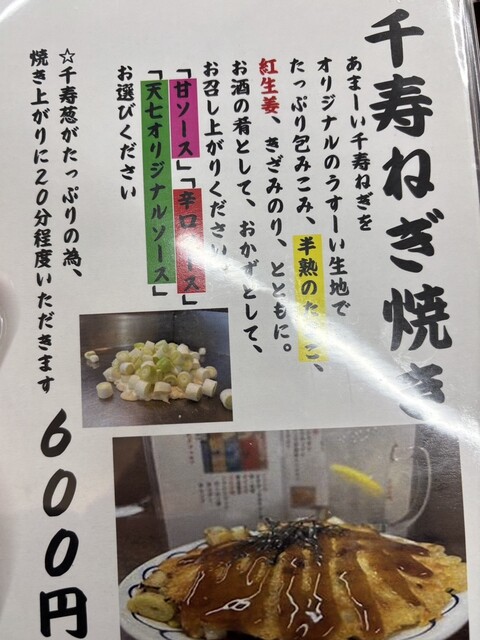 千寿ねぎ焼き
あまーい千寿ねぎを
オリジナルのうすーい生地で
たっぷり包みこみ、半熟のたまご、
紅生姜、きざみのり、とともに。
お酒の肴として、おかずとして、
お召し上がりください。
「甘ソース」「辛口ソース」
「天七オリジナルソース」
お選びください
☆千寿葱がたっぷりの為、
焼き上がりに20分程度いただきます
600円